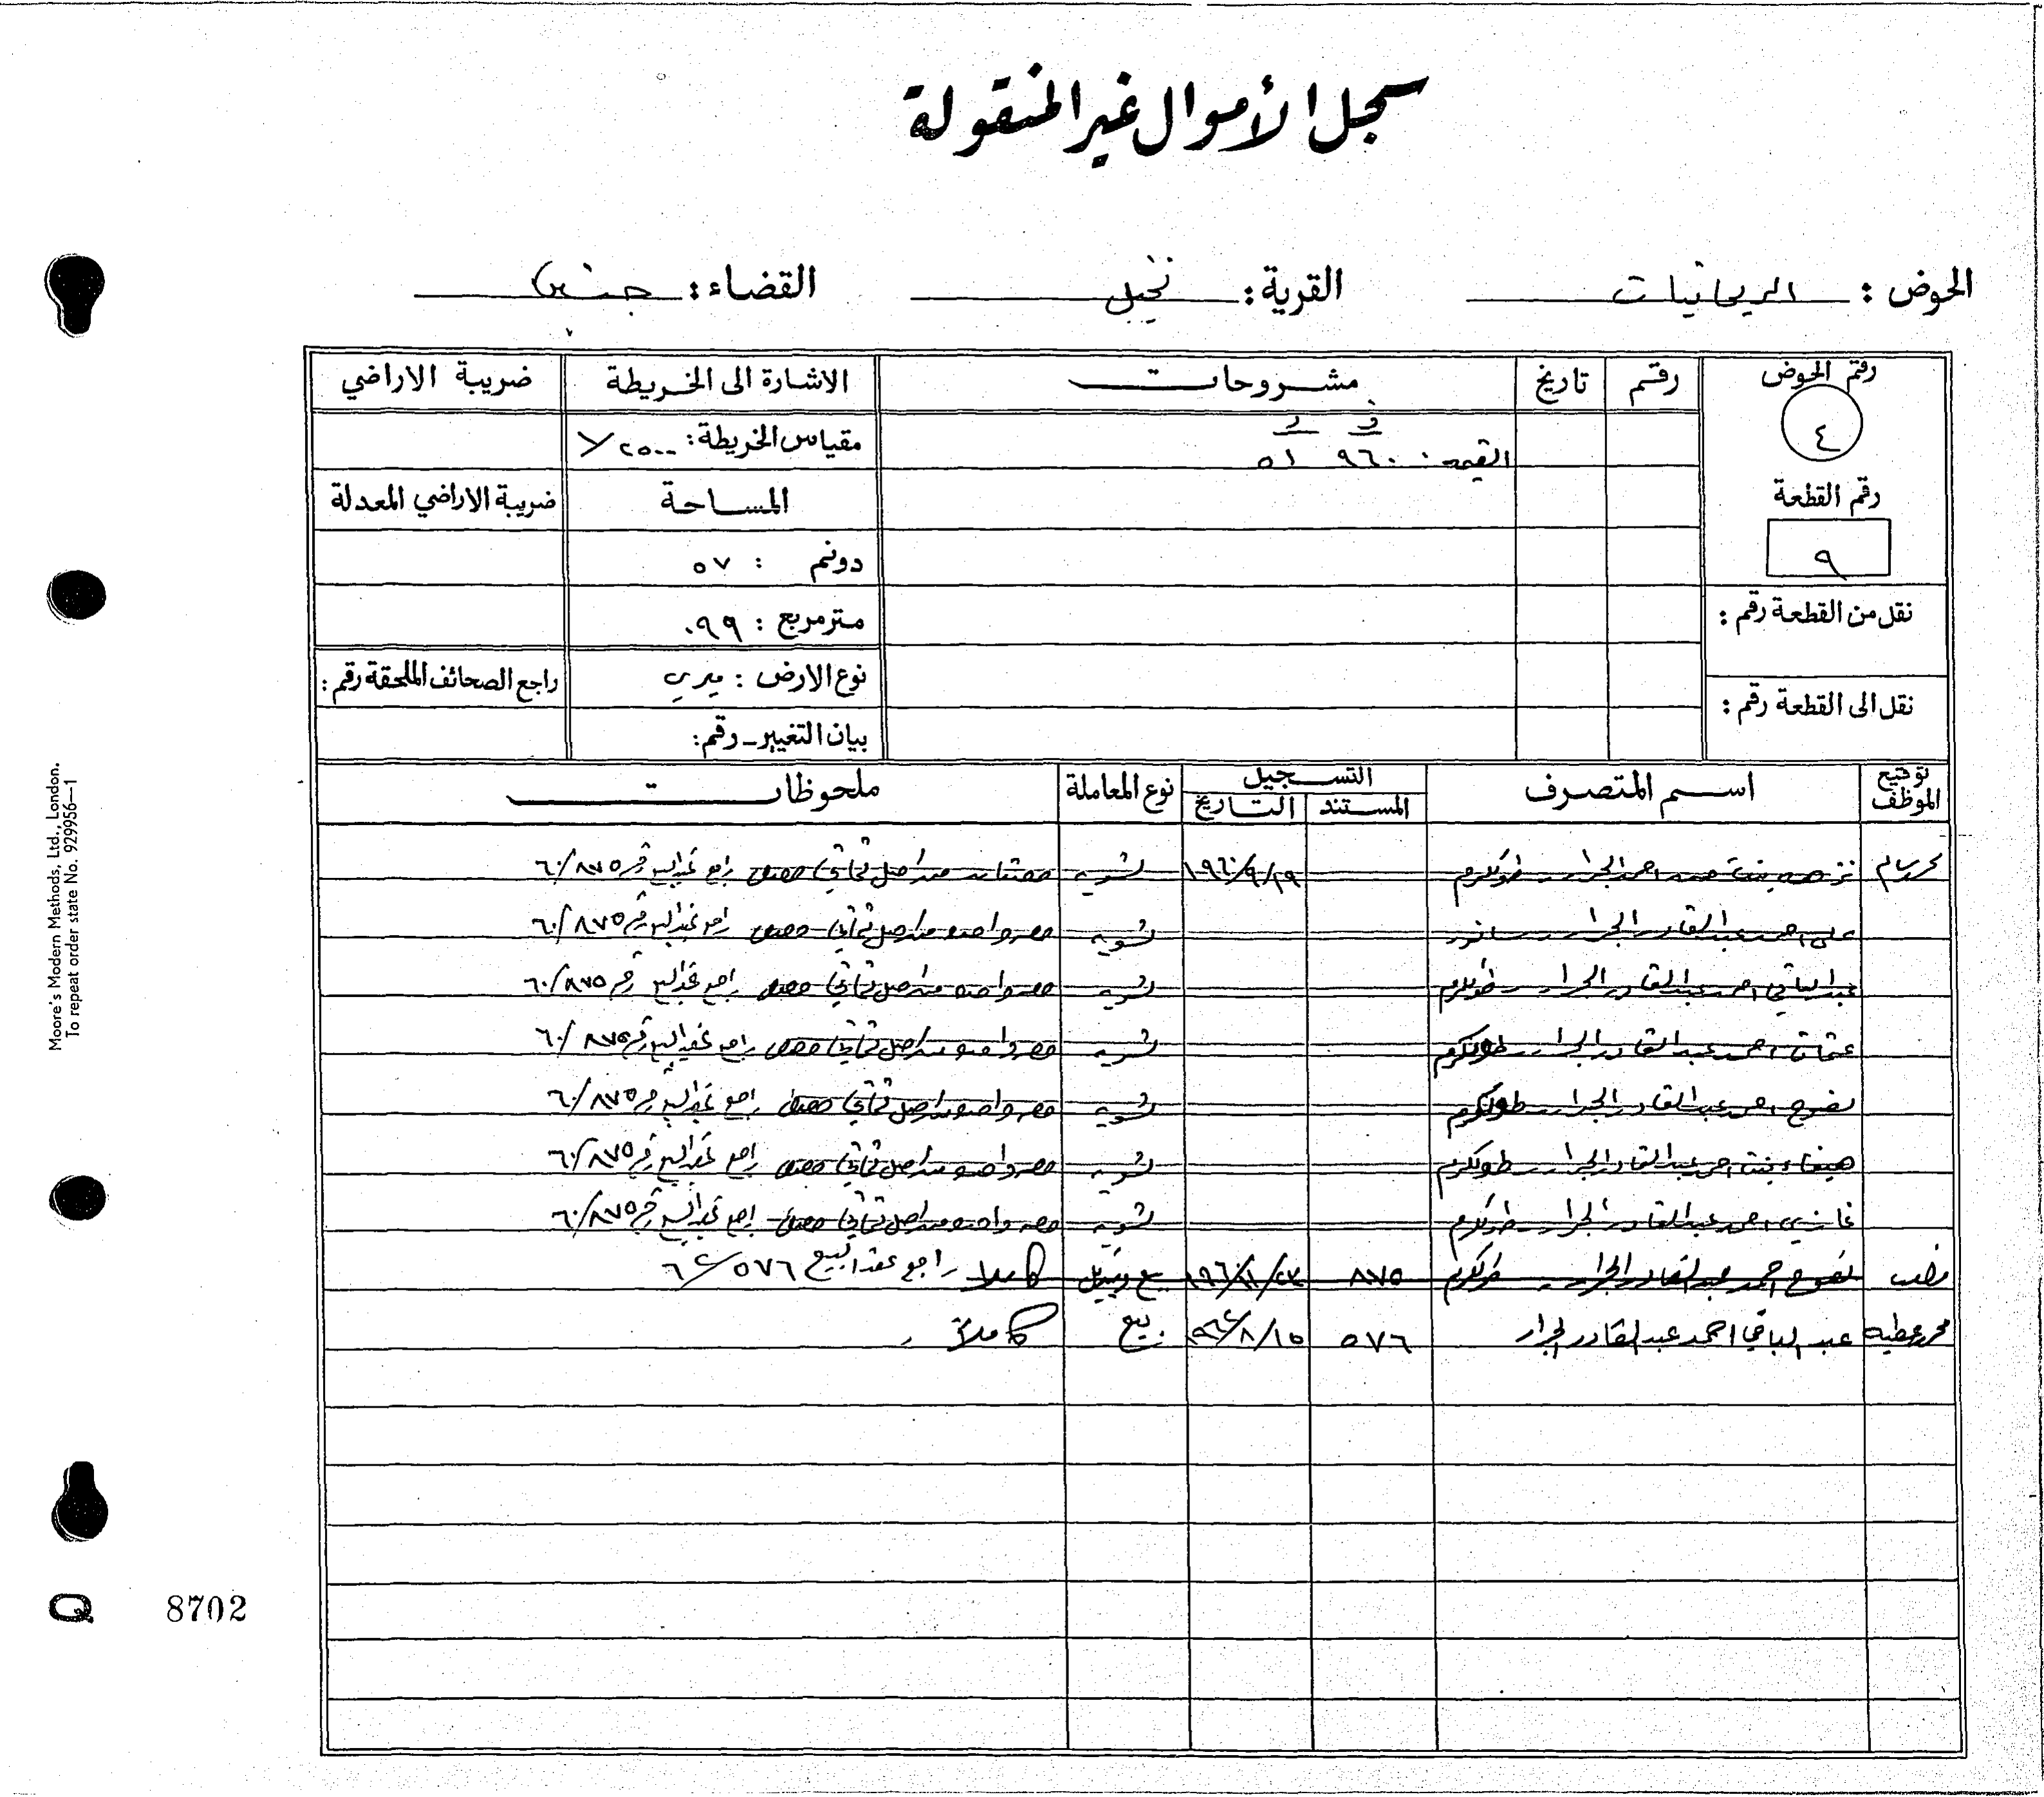 سجل الأموال غير المنقولة
الحوض : الريحانيات القرية : نخيل القضاء : جنين
رقم الحوض رقم تاريخ مشروحات الاشارة الى الخريطة ضريبة الاراضي
٤ ف د مقياس الخريطة : ١/٢٥٠٠
القيمة : ٩٦٠ ٥١
رقم القطعة المساحة ضريبة الاراضي المعدلة
٩ دونم : ٥٧
نقل من القطعة رقم : متر مربع : ٠٩٩
نوع الارض : ميري راجع الصحائف الملحقة رقم :
نقل الى القطعة رقم :
بيان التغيير - رقم :
توقيع الموظف اسم المتصرف التسجيل نوع المعاملة ملحوظات
المستند التاريخ
نزهه بنت احمد الجرار طولكرم ١٩٦٠/٩/١٩ تسوية حصتان من اصل ثماني حصص راجع عقد البيع رقم ٦٠/٨٧٥
علي احمد عبد القادر الجرار صانور تسوية حصه واحده من اصل ثماني حصص راجع عقد البيع رقم ٦٠/٨٧٥
عبد الباقي احمد عبد القادر الجرار طولكرم تسوية حصه واحده من اصل ثماني حصص راجع عقد البيع رقم ٦٠/٨٧٥
عثمان احمد عبد القادر الجرار طولكرم تسوية حصه واحده من اصل ثماني حصص راجع عقد البيع رقم ٦٠/٨٧٥
نصوح احمد عبد القادر الجرار طولكرم تسوية حصه واحده من اصل ثماني حصص راجع عقد البيع رقم ٦٠/٨٧٥
هيفاء بنت احمد عبد القادر الجرار طولكرم تسوية حصه واحده من اصل ثماني حصص راجع عقد البيع رقم ٦٠/٨٧٥
غازي احمد عبد القادر الجرار طولكرم تسوية حصه واحده من اصل ثماني حصص راجع عقد البيع رقم ٦٠/٨٧٥
نصوح احمد عبد القادر الجرار طولكرم ٨٧٥ بيع كاملا راجع عقد البيع ٦٤/٥٧٦
محمد عطيه عبد الباقي احمد عبد القادر الجرار ٥٧٦ ١٩٦٤/٨/١٥ بيع كاملا
Moore's Modern Methods, Ltd., London.
To repeat order state No. 929956—1
Q 8702